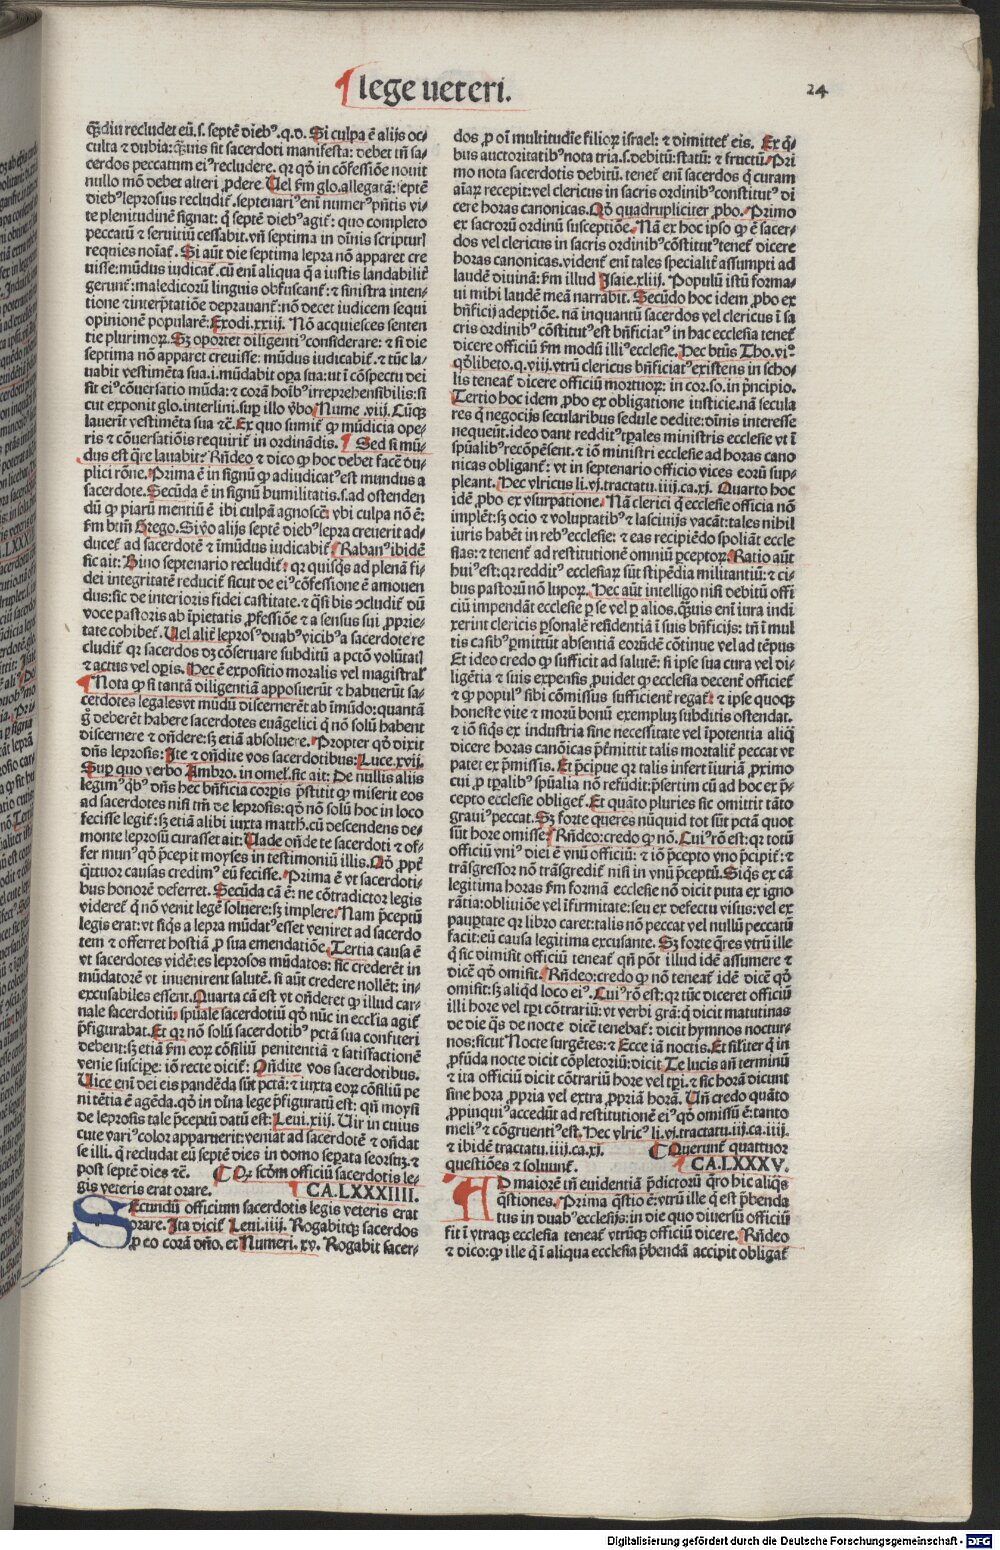 lege ueteri.
24
q̄ꝫdiu recludet eū.s. septē dieb⁹.q.d. Si culpa ē alijs oc-
culta ⁊ dubia: q̄ꝫuis sit sacerdoti manifesta: debet tñ sa-
cerdos peccatum ei⁹ recludere. qꝛ qd̄ in cōfessiōe nouit
nullo mō debet alteri ꝓdere. Uel ẜm glo. allegatā: septē
dieb⁹ leprosus recludit̄. septenari⁹ eni numer⁹ p̄ntis vi-
te plenitudinē signat: q̇ septē dieb⁹ agit̄: quo completo
peccatū ⁊ seruitiū cessabit. vñ septima in diuinis scripturꝭ
requies noiat̄. Si aūt die septima lepra nō apparet cre
uisse: mūdus iudicat̄. cū eni aliqua q̄ a iustis laudabilit̄
gerunt̄: maledicorū linguis obfuscant̄: ⁊ sinistra inten-
tione ⁊ interp̄tatiōe deprauant̄: nō decet iudicem sequi
opinionē popularē: Exodi.xxiij. Nō acquiesces senten
tie plurimoꝝ. Sꝫ oportet diligent̄ cōsiderare: ⁊ si die
septima nō apparet creuisse: mūdus iudicabit̄. ⁊ tūc la-
uabit vestimēta sua.i. mūdabit opa sua: ut ī cōspectu dei
sit ei⁹ cōuersatio mūda: ⁊ corā hoib⁹ irreprehensibilis: si
cut exponit glo. interlini. suꝑ illo v̄bo Nume.viij. Cūqꝫ
lauerit vestimēta sua ⁊c. Ex quo sumit̄ ꝙ mūdicia ope-
ris ⁊ cōuersatiōis requirit̄ in ordinādis. Sed si mū-
dus est q̄re lauabit̄: Rñdeo ⁊ dico ꝙ hoc debet facē du-
plici rōne. Prima ē in signū ꝙ adiudicat⁹ est mundus a
sacerdote. Secūda ē in signū humilitatis. s. ad ostenden
dū ꝙ piarū mentiū ē ibi culpā agnoscē: vbi culpa nō ē:
ẜm btm̄ Grego. Si v̄o alijs septē dieb⁹ lepra creuerit ad-
ducet̄ ad sacerdotē ⁊ īmūdus iudicabit̄. Raban⁹ ibidē
sic ait: Bino septenario recludit̄: qꝛ quisq̇s ad plenā fi-
dei integritatē reducit̄ sicut de ei⁹ cōfessione ē amouen
dus: sic de interioris fidei castitate. ⁊ q̄si bis ɔcludit̄ dū
voce pastoris ab īpietatis ꝓfessiōe ⁊ a sensus sui ꝓprie-
tate cohibet̄. Uel alit̄ lepros⁹ duab⁹ vicib⁹ a sacerdote re
cludit̄ qꝛ sacerdos dꝫ cōseruare subditū a pctō volūtatꝭ
⁊ actus vel oꝑis. Hec ē expositio moralis vel magistralꝭ
Nota ꝙ si tantā diligentiā apposuerūt ⁊ habuerūt sa-
cerdotes legales vt mūdū discernerēt ab īmūdo: quantā
ḡ deberēt habere sacerdotes euāgelici q̇ nō solū habent
discernere ⁊ oñdere: sꝫ etiā absoluere. Propter qd̄ dixit
dñs leprosis: Ite ⁊ oñdite vos sacerdotibus: Luce.xvij.
Suꝑ quo verbo Ambro. in omeł. sic ait: De nullis aliis
legim⁹ q̇b⁹ dñs hec bn̄ficia corꝑis p̄stitit ꝙ miserit eos
ad sacerdotes nisi tm̄ de leprosis: qd̄ nō solū hoc in loco
fecisse legit̄: sꝫ etiā alibi iuxta matth. cū descendens de-
monte leprosū curasset ait: Uade oñde te sacerdoti ⁊ of-
fer mun⁹ qd̄ p̄cepit moyses in testimoniū illis. Qd̄ ꝓpt̄
q̄ttuor causas credim⁹ eū fecisse. Prima ē vt sacerdoti-
bus honorē deferret. Secūda cā ē: ne cōtradictor legis
videret̄ q̇ nō venit legē soluere: sꝫ implere. Nam p̄ceptū
legis erat: vt siq̇s a lepra mūdat⁹ esset veniret ad sacerdo
tem ⁊ offerret hostiā ꝓ sua emendatiōe. Tertia causa ē
vt sacerdotes vidētes leprosos mūdatos: sic crederēt in
mūdatorē vt inuenirent salutē. si aūt credere nollēt: in-
excusabiles essent. Quarta cā est vt oñderet ꝙ illud car-
nale sacerdotiū: spūale sacerdotiū qd̄ nūc in eccłia agit̄
p̄figurabat. Et qꝛ nō solū sacerdotib⁹ pctā sua confiteri
debent: sꝫ etiā ẜm eoꝝ cōsiliū penitentiā ⁊ satisfactionē
venie suscipe: iō recte dicit̄: Oñdite vos sacerdotibus.
Uice eni dei eis pandēda sūt pctā: ⁊ iuxta eoꝝ cōsiliū pe
nitētia ē agēda. qd̄ in diuina lege p̄figuratū est: qn̄ moysi
de leprosis tale p̄ceptū datū est: Leui.xiij. Uir in cuius
cute vari⁹ color apparuerit: veniat ad sacerdotē ⁊ oñdat
se illi. q̇ recludat eū septē dies in domo sepata seorsuꝫ. ⁊
post septē dies ⁊c. ¶ Qꝫ scdm officiū sacerdotis le-
gis veteris erat orare. CA.LXXXIIII.
Secundū officium sacerdotis legis veteris erat
orare. Ita dicit̄ Leui.iiij. Rogabitqꝫ sacerdos
ꝓ eo corā dño. et Numeri.xv. Rogabit sacer-
dos ꝓ oī multitudie filioꝝ israel: ⁊ dimittet̄ eis. Ex q̇-
bus auctoritatib⁹ nota tria. s. debitū: statū: ⁊ fructū. Pri
mo nota sacerdotis debitū. tenet̄ eni sacerdos q̇ curam
aīaꝝ recepit: vel clericus in sacris ordinib⁹ constitut⁹ di
cere horas canonicas. Qd̄ quadrupliciter ꝓbo. Primo
ex sacrorū ordinū susceptiōe. Nā ex hoc ipso ꝙ ē sacer-
dos vel clericus in sacris ordinib⁹ cōstitut⁹ tenet̄ dicere
horas canonicas. vident̄ eni tales specialit̄ assumpti ad
laudē diuinā: ẜm illud Isaie.xliij. Populū istū forma-
ui mihi laudē meā narrabit. Secūdo hoc idem ꝓbo ex
bn̄ficij adeptiōe. nā inquantū sacerdos vel clericus ī sa
cris ordinib⁹ cōstitut⁹ est bn̄ficiat⁹ in hac ecclesia tenet̄
dicere officiū ẜm modū illi⁹ ecclesie. Hec btūs Tho. vi.
qd̄libeto.q.viij. vtrū clericus bn̄ficiat⁹ existens in scho-
lis teneat̄ dicere officiū mortuoꝝ: in cor.so. in p̄ncipio.
Tertio hoc idem ꝓbo ex obligatione iusticie. nā secula
res q̇ negocijs secularibus sedule dedite: diuinis interesse
nequeūt. ideo dant reddit⁹ tꝑales ministris ecclesie vt ī
spūalib⁹ recōpēsent. ⁊ iō ministri ecclesie ad horas cano
nicas obligant̄: vt in septenario officio vices eorū sup-
pleant. Hec vlricus li.vj. tractatu.iiij.ca.xj. Quarto hoc
idē ꝓbo ex vsurpatione. Nā clerici q̇ ecclesie officia nō
implēt: sꝫ ocio ⁊ voluptatib⁹ ⁊ lasciuijs vacāt: tales nihil
iuris habēt in reb⁹ ecclesie: ⁊ eas recipiēdo spoliāt eccle
sias: ⁊ tenent̄ ad restitutionē omniū ꝑceptoꝝ. Ratio aūt
hui⁹ est: qꝛ reddit⁹ ecclesiaꝝ sūt stipēdia militantiū: ⁊ ci-
bus pastorū nō lupoꝝ. Hec aūt intelligo nisi debitū offi
ciū impendāt ecclesie ꝑ se vel ꝑ alios. q̄ꝫuis eni iura indi
xerint clericis ꝑsonalē residentiā ī suis bn̄ficijs: tñ ī mul
tis casib⁹ ꝑmittūt absentiā eorūdē cōtinue vel ad tēpus
Et ideo credo ꝙ sufficit ad salutē: si ipse sua cura vel di-
ligētia ⁊ suis expensis ꝓuidet ꝙ ecclesia decent̄ officiet̄
⁊ ꝙ popul⁹ sibi cōmissus sufficient̄ regat̄: ⁊ ipse quoqꝫ
honeste vite ⁊ morū bonū exempluꝫ subditis ostendat.
⁊ iō siq̇s ex industria sine necessitate vel īpotentia aliq̄
dicere horas canōicas p̄termittit talis mortalit̄ peccat vt
patet ex p̄missis. Et p̄cipue qꝛ talis infert īiuriā ꝓximo
cui ꝓ tꝑalib⁹ spūalia nō refūdit: p̄sertim cū ad hoc ex p̄-
cepto ecclesie obliget̄. Et quāto pluries sic omittit tāto
graui⁹ peccat. Sꝫ forte queres nūquid tot sūt pctā quot
sūt hore omisse: Rñdeo: credo ꝙ nō. Cui⁹ rō est: qꝛ totū
officiū vni⁹ diei ē vnū officiū: ⁊ iō p̄cepto vno p̄cipit̄: ⁊
trāsgressor nō trāsgredit̄ nisi in vnū p̄ceptū. Siq̇s ex cā
legitima horas ẜm formā ecclesie nō dicit puta ex igno
rātia: obliuiōe vel īfirmitate: seu ex defectu visus: vel ex
paupertate qꝛ libro caret: talis nō peccat vel nullū peccatū
facit: eū causa legitima excusante. Sꝫ forte q̄res vtrū ille
q̇ sic dimisit officiū teneat̄ qn̄ pōt illud idē assumere ⁊
dicē qd̄ omisit. Rñdeo: credo ꝙ nō teneat̄ idē dicē qd̄
omisit: sꝫ aliqd loco ei⁹. Cui⁹ rō est: qꝛ tūc diceret officiū
illi hore vel tꝑi cōtrariū: vt verbi grā: q̇ dicit matutinas
de die q̄s de nocte dicē tenebat̄: dicit hymnos noctur-
nos: sicut Nocte surgētes: ⁊ Ecce iā noctis. Et silit̄ q̇ in
ꝓfūda nocte dicit cōpletoriū: dicit Te lucis an̄ terminū
⁊ ita officiū dicit cōtrariū hore vel tꝑi. ⁊ sic horā dicunt
sine hora ꝓpria vel extra ꝓpriā horā. Uñ credo quāto
ꝓpinqui⁹ accedūt ad restitutionē ei⁹ qd̄ omissū ē: tanto
meli⁹ ⁊ cōgruenti⁹ est. Hec vlric⁹ li.vj. tractatu.iij.ca.iiij.
⁊ ibidē tractatu.iiij.ca.xj. ¶ Querunt̄ quattuor
questiōes ⁊ soluunt̄. CA.LXXXV.
AD maiorē tñ euidentiā p̄dictorū q̄ro hic aliq̄s
q̄stiones. Prima q̄stio ē: vtrū ille q̇ est p̄benda
tus in duab⁹ ecclesijs: in die quo diuersū officiū
fit ī vtraqꝫ ecclesia teneat̄ vtrūqꝫ officiū dicere. Rñdeo
⁊ dico: ꝙ ille q̇ ī aliqua ecclesia p̄bendā accipit obligat̄
Digitalisierung gefördert durch die Deutsche Forschungsgemeinschaft - DFG